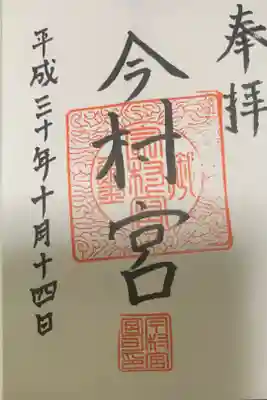 奉拝
今村宮
平成三十年十月十四日
今村宮